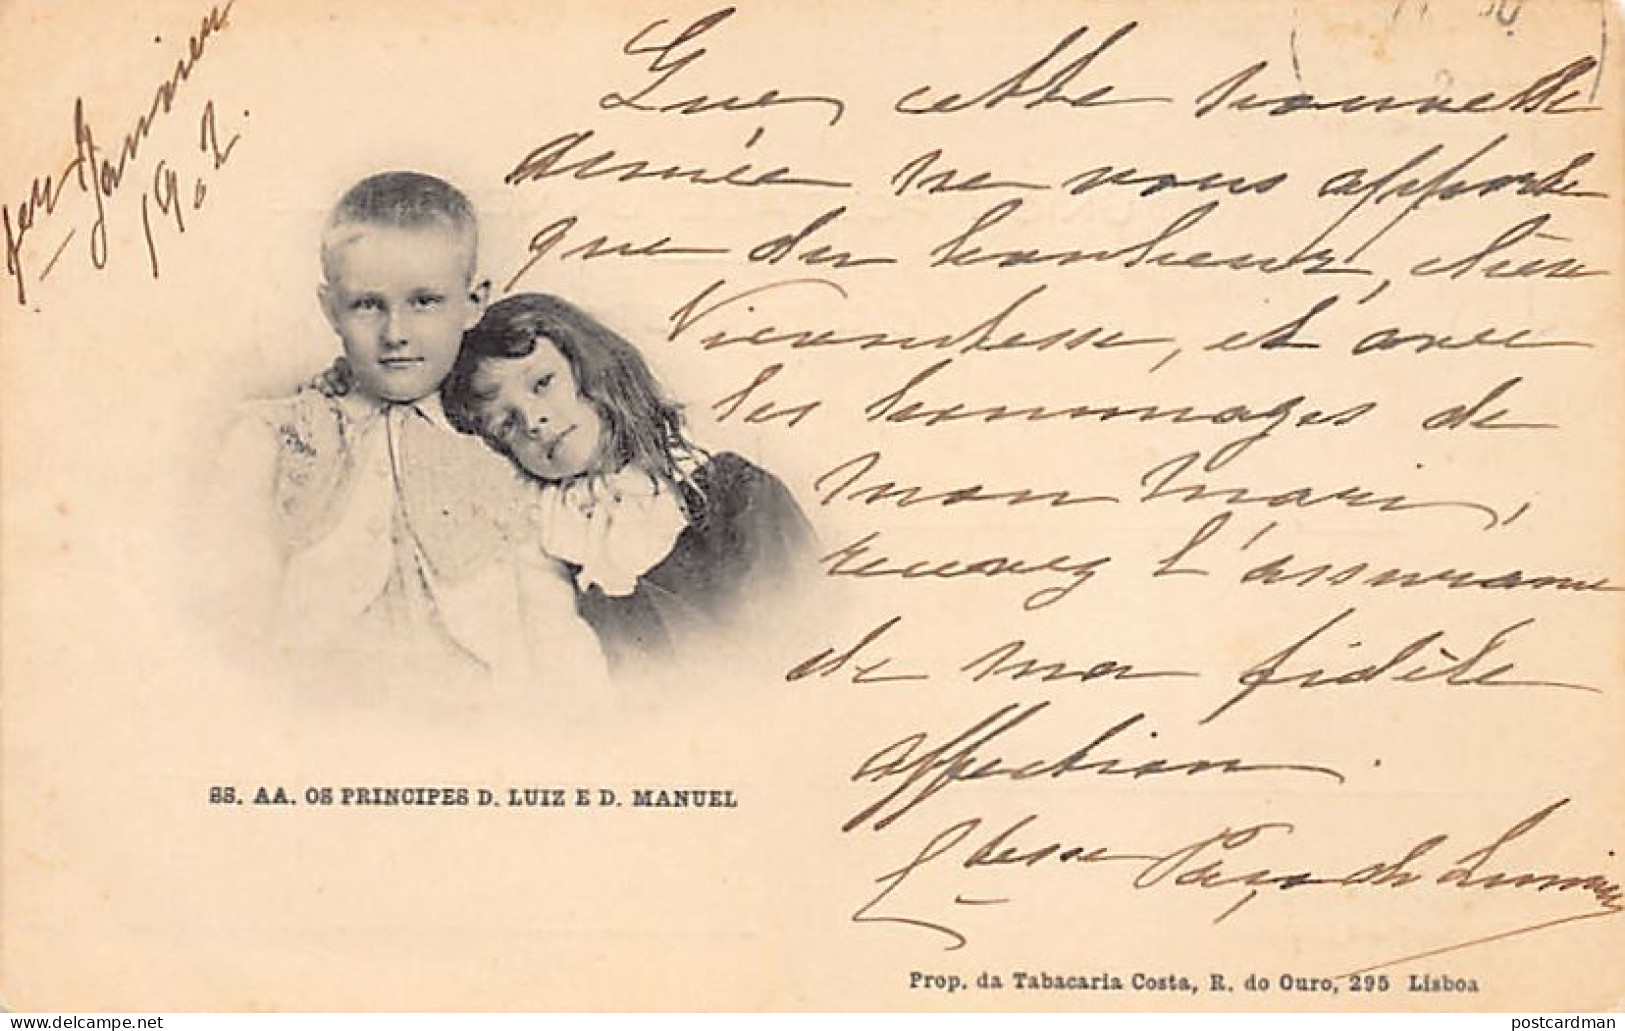 1er Janvier
1902.
Que cette nouvelle
année ne vous apporte
que du bonheur, chère
Vicomtesse, et avec
les hommages de
mon mari,
recevez l'assurance
de ma fidèle
affection.
Ctesse Paço de Lumiar
SS. AA. OS PRINCIPES D. LUIZ E D. MANUEL
Prop. da Tabacaria Costa, R. do Ouro, 295 Lisboa
postcardman